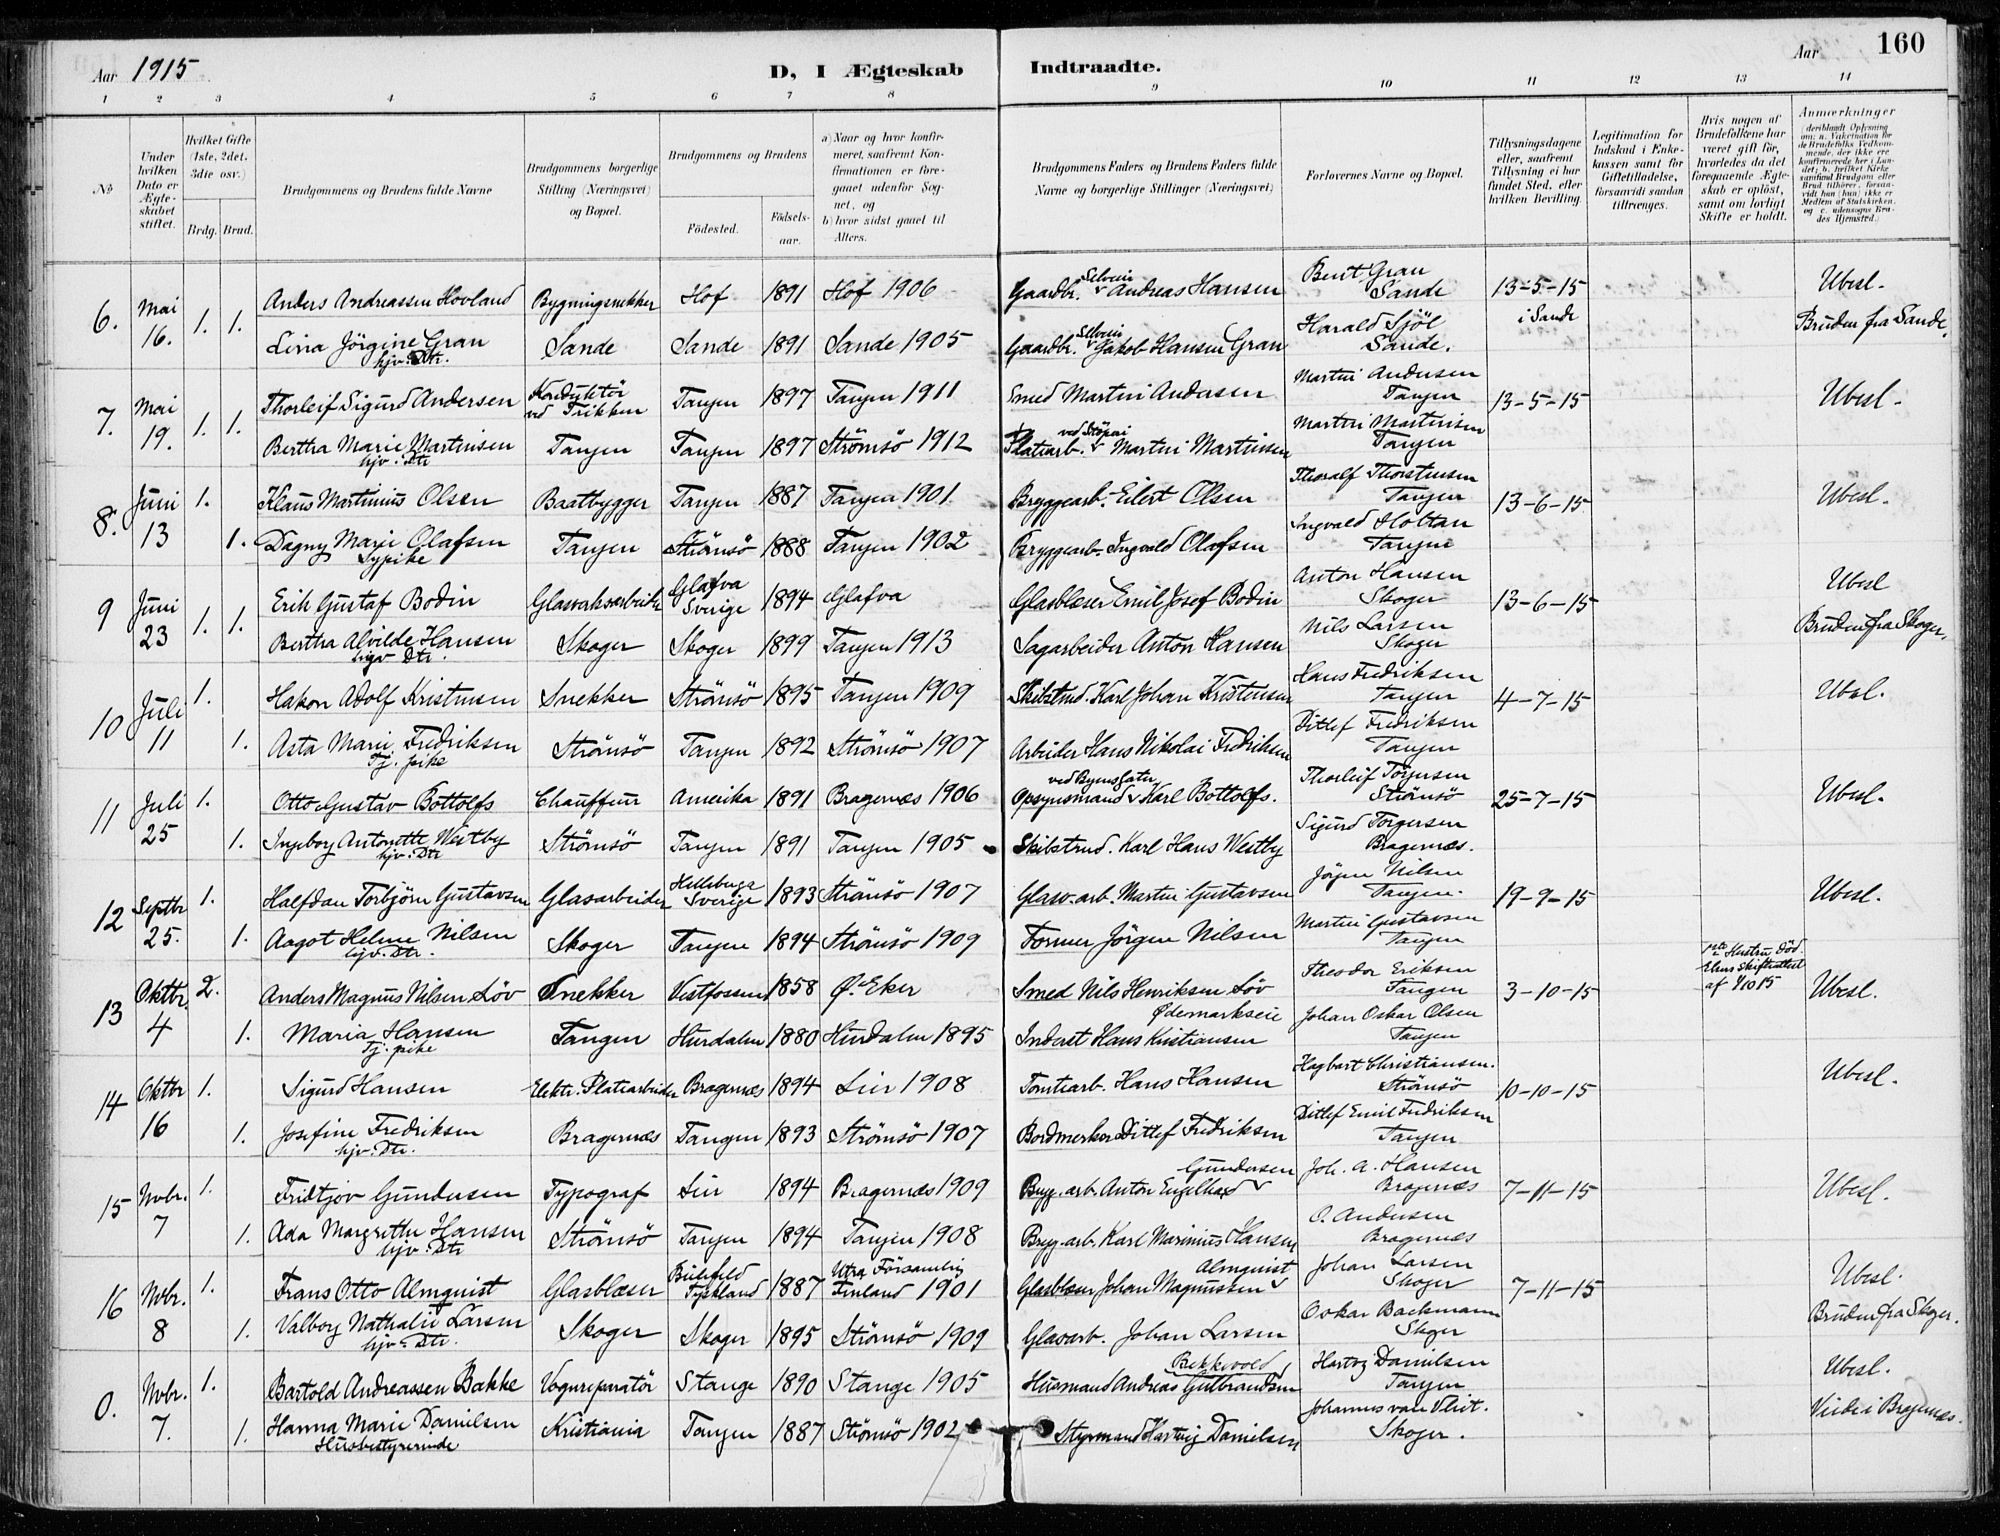 Aar 1915
D, I Ægteskab
Indtraadte.
Aar
160
1 2 3 4 5 6 7 8 9 10 11 12 13 14
№
Under hvilken Dato er Ægteskabet stiftet.
Hvilket Gifte (1ste, 2det, 3die osv.)
Brdg. Brud.
Brudgommens og Brudens fulde Navne
Brudgommens borgerlige Stilling (Næringsvei) og Bopæl.
Brudgommens og Brudens
Födested.
Födselsaar.
a) Naar og hvor konfirmeret, saafremt Konfirmationen er foregaaet udenfor Sognet, og
b) hvor sidst gaaet til Alters.
Brudgommens Faders og Brudens Faders fulde Navne og borgerlige Stillinger (Næringsvei)
Forlovernes Navne og Bopæl.
Tillysningsdagene eller, saafremt Tillysning ei har fundet Sted, efter hvilken Bevilling.
Legitimation for Indskud i Enkekassen samt for Giftetilladelse, forsaavidt saadan tiltrænges.
Hvis nogen af Brudefolkene har været gift för, hvorledes da det foregaaende Ægteskab er oplöst, samt om lovligt Skifte er holdt.
Anmærkninger (deriblandt Oplysning om: a. Vakcination for de Brudefolks Vedkommende, der ikke ere konfirmerede her i Landet; b. hvilket Kirkesamfund Brudgom eller Brud tilhörer, forsaavidt han (hun) ikke er Medlem af Statskirken, og c. udensogns Brudes Hjemsted.)
6. Mai 16. 1. 1. Anders Andreassen Hovland Bygningsnekker Hof 1891 Hof 1906 Gaardbr. Selveier Andreas Hansen Berit Gran Sande 13-5-15 i Sande Ubesl.
Lina Jörgine Gran hjv. Dtr. Sande Sande 1891 Sande 1905 Gaardbr. Selveier Jakob Hansen Gran Harald Sjöl Sande. Bruden fra Sande.
7. Mai 19. 1. 1. Thorleif Sigurd Andersen Konduktör ved Trikken Tangen 1897 Tangen 1911 Smed Martin Andersen Martin Andersen Tangen 13-5-15 Ubesl.
Bertha Marie Martinsen hjv. Dtr Tangen Tangen 1897 Strömsö 1912 Platearb. Martin Martinsen Martin Martinsen Tangen
8. Juni 13 1. Klaus Martinius Olsen Baatbygger Tangen 1887 Tangen 1901. Bryggearb. Eilert Olsen Thoralf Thorstensen Tangen 13-6-15 Ubesl.
1. Dagny Marie Olafsen Sypike Tangen Strömsö 1888 Tangen 1902 Bryggearb. Ingvald Olafsen Ingvald Holtan Tangen
9 Juni 23 1. 1. Erik Gustaf Bodin Glasværksarbeider Glafva Sverige 1894 Glafva Glasblæser Emil Josef Bodin Anton Hansen Skoger 13-6-15 Ubesl
Bertha Alvilde Hansen hjv Dtr. Skoger Skoger 1899 Tangen 1913 Sagarbeider Anton Hansen Nils Larsen Skoger Bruden fra Skoger.
10 Juli 11 1. Hakon Adolf Kristensen Snekker Strömsö 1895 Tangen 1909 Skibstmd. Karl Johan Kristensen Hans Fredriksen Tangen 4-7-15 Ubesl.
1. Asta Marie Fredriksen Tj. pike Strömsö Tangen 1892 Strömsö 1907 Arbeider Hans Nikolai Fredriksen Ditlef Fredriksen Tangen
11 Juli 25 1. Otto Gustav Bottolfs Chauffeur Amerika 1891 Bragernæs 1906 Opsynsmand ved Byens gater Karl Bottolfs. Thorleif Torgersen Strömsö 25-7-15 Ubesl.
1. Ingeborg Antonette Westby hjv. Dtr Strömsö Tangen 1891 Tangen 1905 Skibstmd. Karl Hans Westby Sigurd Torgersen Bragernæs.
12 Septbr 25. 1. Halfdan Torbjörn Gustavsen Glasarbeider Sverige 1893 Strömsö 1907 Glasv. arb. Martin Gustavsen Jörgen Nilsen Tangen. 19-9-15 Ubesl.
1. Aagot Helene Nilsen hjv. Dtr. Skoger Tangen 1894 Strömsö 1909 Former Jörgen Nilsen Martin Gustavsen Tangen
13 Oktbr 4 2. Anders Magnus Nilsen Löv Snekker Vestfossen 1858 Ø. Eker Smed Nils Henriksen Löv Ødemarkseie Theodor Eriksen Tangen 3-10-15 1ste Hustru död. Ubesl.
1. Maria Hansen Tj. pike Tangen Hurdalen 1880 Hurdalen 1895 Inderst Hans Kristiansen Johan Oskar Olsen Tangen
14 Oktbr 16 1. Sigurd Hansen Elektr. Platearbeider Bragernæs 1894 Lier 1908 Tomtearb. Hans Hansen Hagbart Christiansen. Strömsö 10-10-15 Ubesl.
1. Josefine Fredriksen hjv. Dtr. Bragernæs Tangen 1893 Strömsö 1907 Bordmerker Ditlef Fredriksen Ditlef Emil Fredriksen Tangen
15 Nvbr. 7 1. Fridtjov Gundersen Typograf Lier 1894 Bragernæs 1909 Bryg. arb. Anton Engelhard Gundersen Joh. A. Hansen Bragernæs 7-11-15 Ubesl.
1. Ada Margrethe Hansen hjv. Dtr Strömsö Tangen 1894 Tangen 1908 Bryg. arb. Karl Marinius Hansen O. Andersen Bragernæs
16 Nvbr. 8 1. Frans Otto Almquist Glasblæser Bielefeld Tyskland 1887 Utra Församling Finland 1901 Glasblæser Johan Magnussen Almquist Johan Larsen Skoger 7-11-15 Ubesl.
1. Valborg Nathalie Larsen hjv. Dtr. Skoger Skoger 1895 Strömsö 1909 Glasarb. Johan Larsen Oskar Backmann Skoger Bruden fra Skoger.
0. Nvbr. 7. 1. Bartold Andreassen Bakke Vognreparatör Stange 1890 Stange 1905 Husmand Andreas Gulbrandsen Bekkevold Hartvig Danielsen Tangen Ubesl.
1. Hanna Marie Danielsen Husbestyrerinde Kristiania Tangen 1887 Strömsö 1902 Styrmand Hartvig Danielsen Johannes van Vliet. Skoger. Viede i Bragernæs.